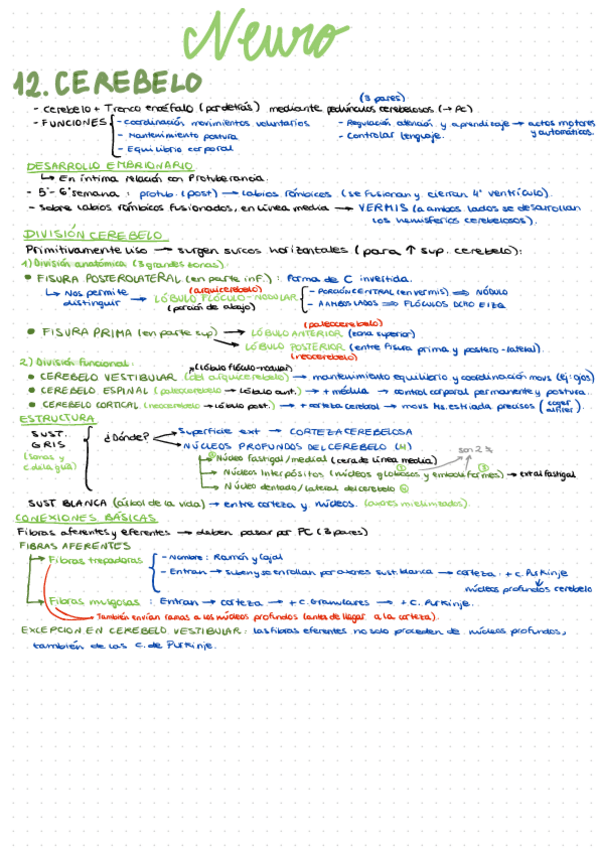 Neuro
12. CEREBELO
(3 pares)
- Cerebelo + Tronco encéfalo (por detrás) mediante pedúnculos cerebelosos (→ PC)
- FUNCIONES - Coordinación movimientos voluntarios - Regulación atención y aprendizaje → actos motores y automáticos.
- Mantenimiento postura - Controlar lenguaje.
- Equilibrio corporal
DESARROLLO EMBRIONARIO
↳ En íntima relación con Protuberancia.
- 5ª - 6ª semana : protub. (post) → labios rómbicos (se fusionan y cierran 4º ventrículo).
- Sobre labios rómbicos fusionados, en línea media → VERMIS (a ambos lados se desarrollan
los hemisferios cerebelosos).
DIVISIÓN CEREBELO
Primitivamente liso → surgen surcos horizontales (para ↑ sup. cerebelo):
1) División anatómica (3 grandes zonas)
• FISURA POSTEROLATERAL (en parte inf.) : Forma de C invertida.
(arquicerebelo)
↳ Nos permite distinguir → LÓBULO FLÓCULO-NODULAR - PORCIÓN CENTRAL (en vermis) ⇒ NÓDULO
(porción de abajo) - A AMBOS LADOS ⇒ FLÓCULOS DCHO E IZQ
(paleocerebelo)
• FISURA PRIMA (en parte sup) → LÓBULO ANTERIOR (zona superior)
LÓBULO POSTERIOR (entre fisura prima y postero-lateral).
(neocerebelo)
2) División funcional.
(lóbulo flóculo-nodular)
• CEREBELO VESTIBULAR (del arquicerebelo) → mantenimiento equilibrio y coordinación movs (ej: ojos)
• CEREBELO ESPINAL (paleocerebelo → lóbulo ant.) → + médula → control corporal permanente y postura.
• CEREBELO CORTICAL (neocerebelo → lóbulo post.) → + corteza cerebral → movs Ms. estriada precisos (coger alfiler)
ESTRUCTURA
SUST. GRIS ¿Dónde? → Superficie ext → CORTEZA CEREBELOSA
→ NÚCLEOS PROFUNDOS DEL CEREBELO (4)
son 2
Núcleo fastigial/medial (cerca de línea media)
Núcleos Interpósitos (núcleos globosos y emboliformes)
Núcleo dentado/lateral del cerebelo
SUST BLANCA (árbol de la vida) → entre corteza y núcleos.
CONEXIONES BÁSICAS
Fibras aferentes y eferentes → deben pasar por PC (3 pares)
FIBRAS AFERENTES
→ Fibras trepadoras - Nombre: Ramón y Cajal
- Entran → suben y se enrollan por axones sust. blanca → corteza : + c. Purkinje
núcleos profundos cerebelo
→ Fibras musgosas : Entran → corteza → + c. Granulares → + c. Purkinje.
→ También envían ramas a los núcleos profundos (antes de llegar a la corteza).
EXCEPCIÓN EN CEREBELO VESTIBULAR : las fibras eferentes no solo proceden de núcleos profundos,
también de las c. de Purkinje.